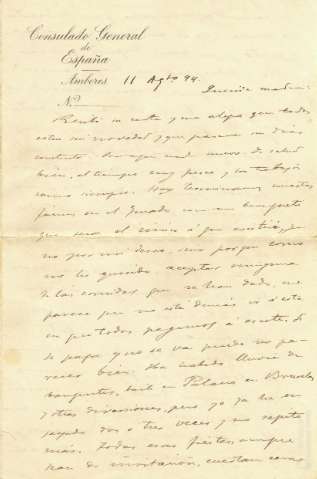 Consulado General
de
España
Amberes 11 Agto 94.
Nº
Querida madre:
Recibí su carta y me alegra que todos
estén sin novedad y que pasen sus días
contento. Por aquí nada nuevo: de salud
bien, el tiempo muy fresco y con trabajo
como siempre. Hoy terminamos nuestras
tareas en el Jurado con un banquete
que será el único á que asistiré,
no por mi deseo, sino porque como
no he querido aceptar ninguna
de las comidas que se han dado, me
parece que no está demás ir á esta
en que todos pagamos á escote. Si
se paga y no se va puede no pa-
recer bien. Ha habido
banquetes, baile en Palacio en Bruselas
y otras diversiones, pero yo ya he en
dos ó tres veces y no repito
más. Todas esas fiestas aunque
son de invitación, cuestan caras